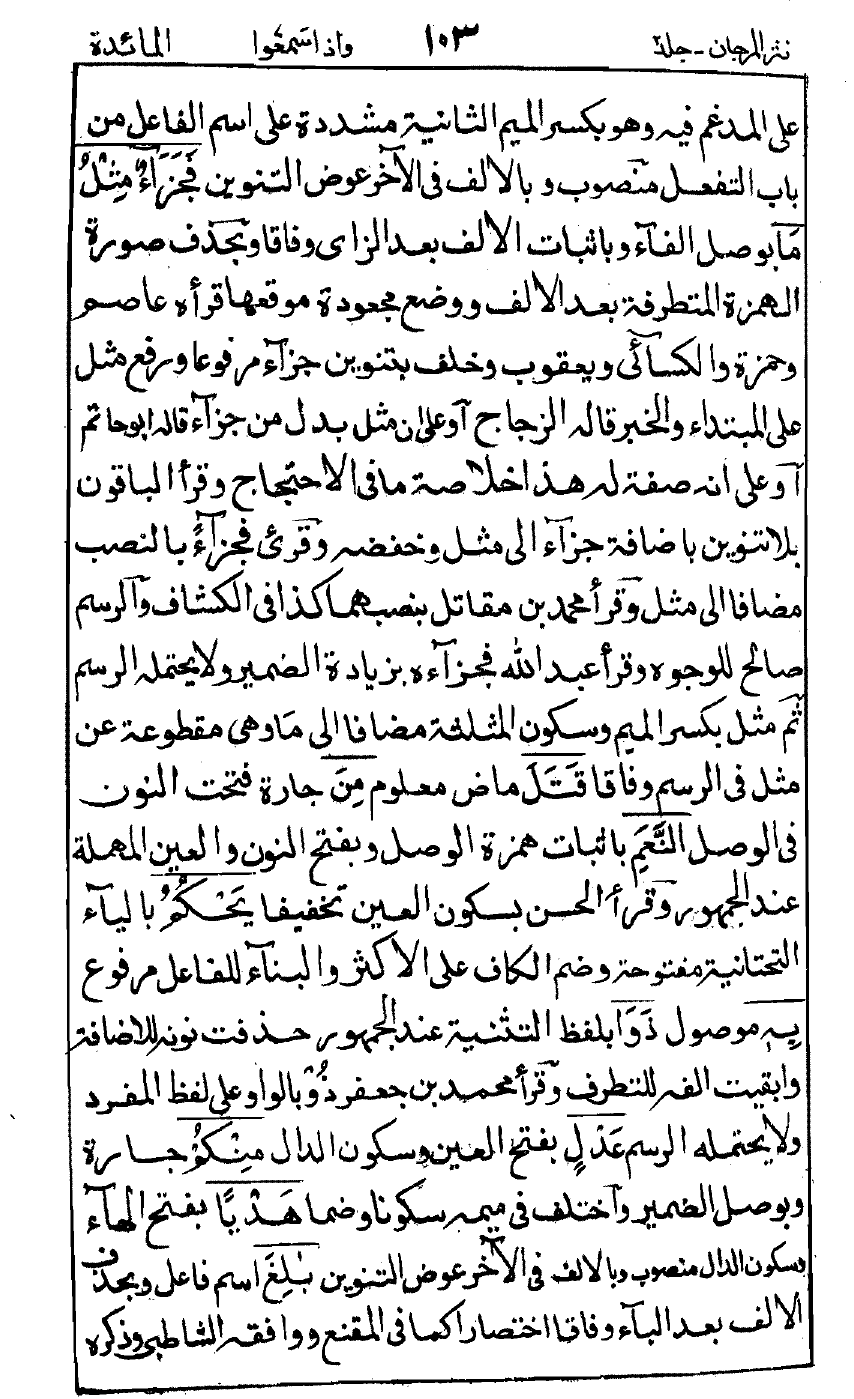 نثر المرجان - جلد ١٠٣ واذا سمعوا المائدة
على المدغم فيه وهو بكسر الميم الثانية مشددة على اسم الفاعل من
باب التفعل منصوب وبالالف فى الآخر عوض التنوين فَجَزَآءٌ مِثْلُ
مَا بوصل الفآء وباثبات الالف بعد الزاى وفاقا وبحذف صورة
الهمزة المتطرفة بعد الالف ووضع مجعودة موقعها قرأه عاصم
وحمزة والكسآئى ويعقوب وخلف بتنوين جزآء مرفوعا ورفع مثل
على المبتداء والخبر قاله الزجاج آو على ان مثل بدل من جزآء قاله ابو حاتم
آو على انه صفة له هذا خلاصة ما فى الاحتجاج وقرأ الباقون
بلا تنوين باضافة جزآء الى مثل وخفضه وقرئ فجزآءً بالنصب
مضافا الى مثل وقرأ محمد بن مقاتل بنصبهما كذا فى الكشاف والرسم
صالح للوجوه وقرأ عبد الله فجزآءه بزيادة الضمير ولا يحتمله الرسم
ثم مثل بكسر الميم وسكون المثلثة مضافا الى مَا وهى مقطوعة عن
مثل فى الرسم وفاقا قَتَلَ ماض معلوم مِنَ جارة فتحت النون
فى الوصل النَّعَمِ باثبات همزة الوصل وبفتح النون والعين المهملة
عند الجمهور وقرأ الحسن بسكون العين تخفيفا يَحْكُمُ بالياء
التحتانية مفتوحة وضم الكاف على الاكثر والبنآء للفاعل مرفوع
بِهٖ موصول ذَوَا بلفظ التثنية عند الجمهور حذفت نونه للاضافة
وابقيت الفه للتطرف وقرأ محمد بن جعفر ذُوْ بالواو على لفظ المفرد
ولا يحتمله الرسم عَدْلٍ بفتح العين وسكون الدال مِنْكُمْ جارة
وبوصل الضمير وآختلف فى ميمه سكونا وضما هَدْيًا بفتح الهآء
وسكون الدال منصوب وبالالف فى الآخر عوض التنوين بٰلِغَ اسم فاعل وبحذف
الالف بعد البآء وفاقا اختصارا كما فى المقنع ووافقه الشاطبى وذكره